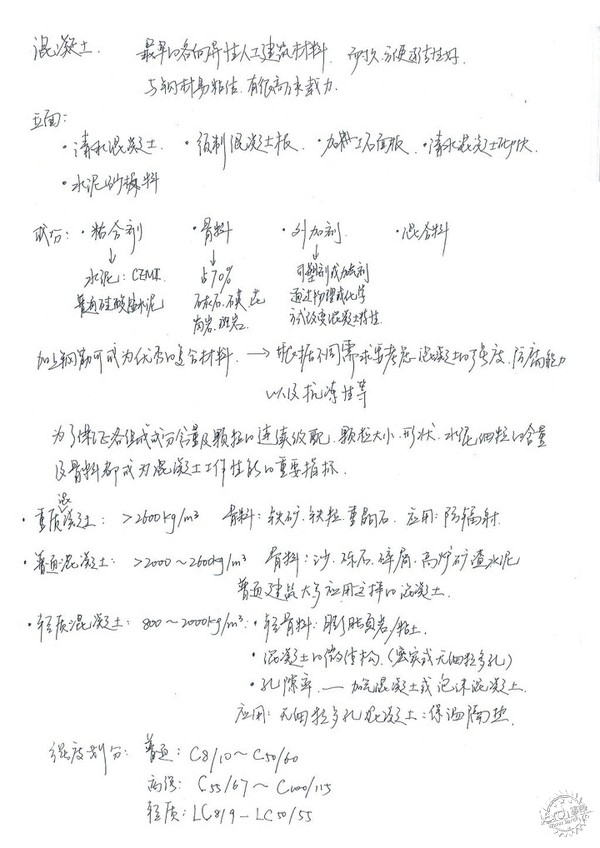 混凝土. 最早的各向异性人工建筑材料. 耐久.方便.适性好.
与钢材易粘结.有很高承载力.
立面:
·清水混凝土. ·预制混凝土板. ·加工石面板. ·清水混凝土砌块
·水泥纱 料
成分: ·粘合剂 ·骨料 ·外加剂. ·混合料
↓ ↓ ↓
水泥: CEMI. 占70% 可塑剂或加气剂
普通硅酸盐水泥 砾石. 通过物理或化学
方式改变混凝土特性.
加上钢筋可成为优秀的复合材料. → 根据不同需求要考虑混凝土的强度.防腐能力
以及抗冻性等
为了保证各组成成分含量及颗粒的连续级配. 颗粒大小.形状.水泥细粒的含量
及骨料都成为混凝土工作性能的重要指标.
·重质混凝土: >2600kg/m³ 骨料: 铁矿.铁粒.重晶石. 应用: 防辐射.
·普通混凝土: >2000~2600kg/m³ 骨料: 沙.砾石.碎屑.高炉矿渣水泥
普通建筑大多应用这样的混凝土.
·轻质混凝土: 800~2000kg/m³: ·轻骨料: 膨胀页岩/粘土.
·混凝土的微结构.(密实或无细粒多孔)
·孔隙率. — 加气混凝土或泡沫混凝土.
应用: 无细粒多孔混凝土: 保温隔热.
强度划分: 普通: C8/10~C50/60
高强: C55/67~C100/115
轻质: LC8/9-LC50/55